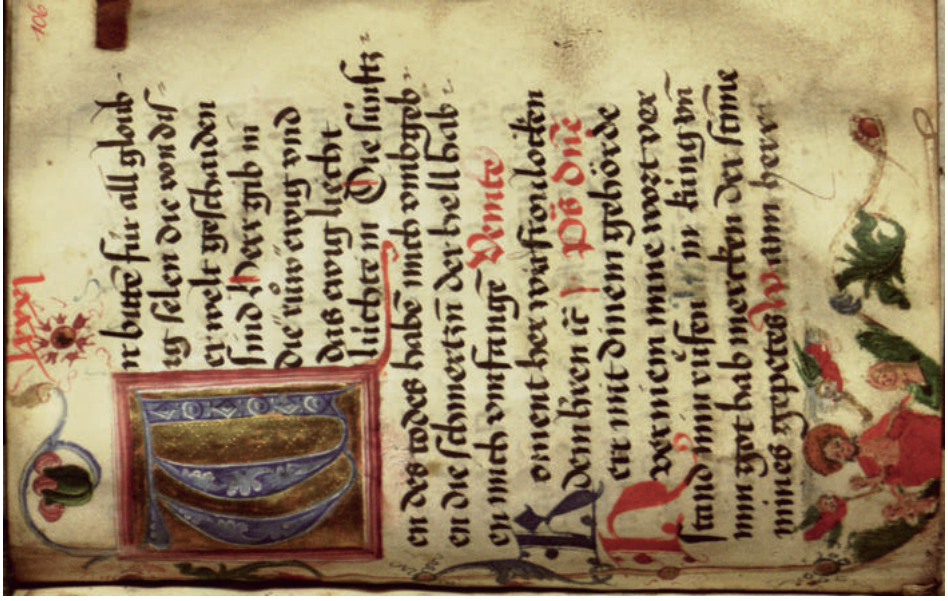 106
lxxxi
ir bitte für all gloub-
ig selen die von diß-
er welt geschaiden
sind Herr gib in
die rüw ewig vnd
das ewig liecht
lüchte in Die sünftz-
en des todes habē mich vmbgeb-
en die schmertzn der hell hab-
en mich vmfangē Venite
oment her wir froulocken
dem hren ⁊c ps dne
err mit dinem gehörde
verniem mine wort ver
stand min rüfen in küng vn̄
min got hab mercken der stime
mines gepetes min herr